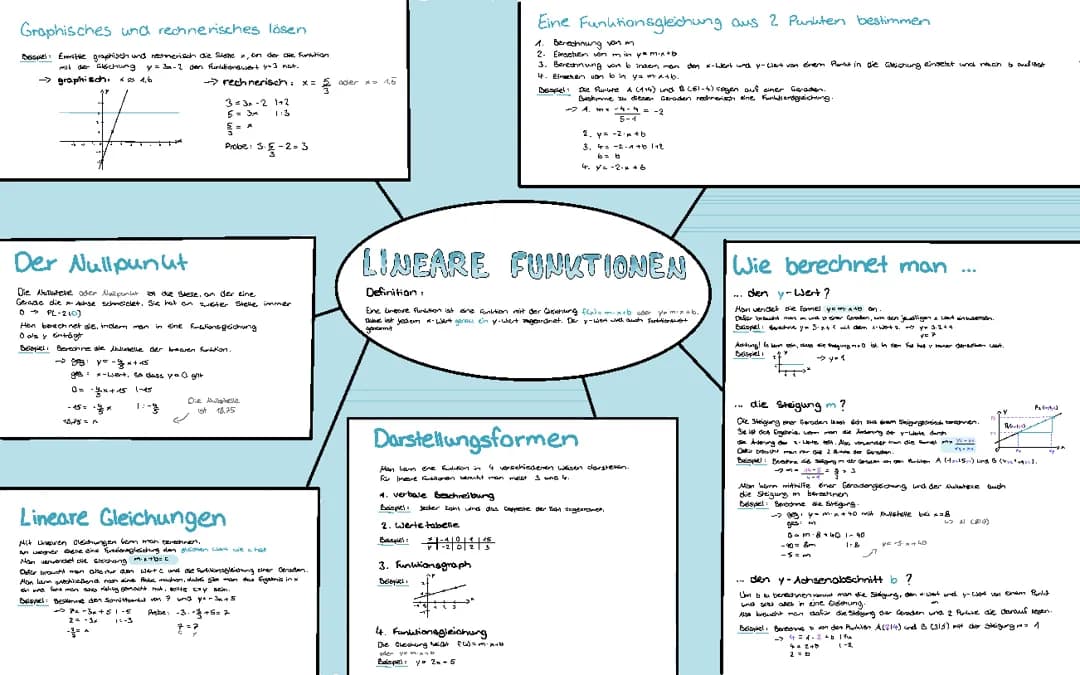 Graphisches und rechnerisches lösen
Beispiel: Ermittle graphisch und rechnerisch die Stelle x, an der die Funktion
mit der Gleichung y = 3x-2 den Funktionswert y=3 hat.
→ graphisch: x ≈ 1,6
→ rechnerisch: x = 5/3 oder
3 = 3x - 2 |+2
5 = 3x |:3
5/3 = x
Probe: 3·5/3 - 2 = 3
Eine Funktionsgleichung aus 2 Punkten bestimmen
1. Berechnung von m
2. Einsetzen von m in y = m·x+b
3. Berechnung von b indem man den x-Wert und y-Wert von einem Punkt in die Gleichung einsetzt und nach b auflöst
4. Einsetzen von b in y = m·x+b.
Beispiel: Die Punkte A (1|4) und B (5|-4) liegen auf einer Geraden.
Bestimme zu dieser Geraden rechnerisch eine Funktionsgleichung.
→ 1. m = -4-4/5-1 = -2
2. y = -2·x+b
3. 4 = -2·1+b |+2
6 = b
4. y = -2·x+6
LINEARE FUNKTIONEN
Definition:
Eine lineare Funktion ist eine Funktion mit der Gleichung f(x)=m·x+b oder y=m·x+b.
Dabei ist jedem x-Wert genau ein y-Wert zugeordnet. Der y-Wert wird auch Funktionswert
genannt
Der Nullpunkt
Die Nullstelle oder Nullpunkt ist die Stelle, an der eine
Gerade die x-Achse schneidet. Sie hat an zweiter Stelle immer
0 → P(-2|0)
Man berechnet sie, indem man in eine Funktionsgleichung
0 als y einträgt
Beispiel: Berechne die Nullstelle der linearen Funktion.
→ geg: y =
ges: x-Wert, so dass y=0 gilt
0 = |-15
-15 =
18,75 = x
Die Nullstelle
ist 18,75
Lineare Gleichungen
Mit linearen Gleichungen kann man berechnen,
an welcher Stelle eine Funktionsgleichung den
Man verwendet die Gleichung m·x+b=c
Dafür braucht man also nur den Wert c und die Funktionsgleichung einer Geraden.
Man kann anschließend man eine Probe machen, dafür
Beispiel: Bestimme den Schnittpunkt von 7 und y=-3x+5
→ 7 = -3x+5 |-5
2 = -3x |:-3
-2/3 = x
Probe: -3·-2/3+5 = 7
7 = 7
Darstellungsformen
Man kann eine Funktion in 4 verschiedenen Weisen darstellen.
Für lineare Funktionen benutzt man meist 3 und 4.
1. verbale Beschreibung
Beispiel: Jeder Zahl wird das Doppelte der Zahl zugeordnet.
2. Wertetabelle
Beispiel:
3. Funktionsgraph
Beispiel:
4. Funktionsgleichung
Die Gleichung heißt f(x)=m·x+b
oder y=m·x+b
Beispiel: y = 2x - 5
Wie berechnet man ...
... den y-Wert?
Man wendet die Formel y=m·x+b an.
Dafür braucht man m und b einer Geraden, um den jeweiligen x-Wert einzusetzen.
Achtung! Es kann sein, dass die Steigung m=0 ist.
Beispiel:
→ y=1
... die Steigung m?
Die Steigung einer Geraden lässt sich aus einem Steigungsdreieck berechnen.
Sie ist das Ergebnis, wenn man die Änderung der y-Werte durch
die Änderung der x-Werte teilt. Also verwendet man die Formel
Dafür braucht man nur die 2 Punkte der Geraden.
Man kann mithilfe einer Geradengleichung und der Nullstelle auch
die Steigung m berechnen
Beispiel: Berechne die Steigung.
→ geg: y = m·x+40 mit Nullstelle bei x=8
ges: m
→ N (8|0)
0 = m·8+40 |-40
-40 = 8m |:8
-5 = m
y=-5·x+40
... den y-Achsenabschnitt b?
Um b zu berechnen nimmt man die Steigung, den x-Wert und y-Wert von einem Punkt
und setzt alles in eine Gleichung.
Also braucht man dafür die Steigung der Geraden und 2 Punkte die darauf liegen.
Beispiel: Berechne b von den Punkten A(2|4) und B (3|5) mit der Steigung m = 1
→ 4 = 1·2+b
4 = 2+b |-2
2 = b